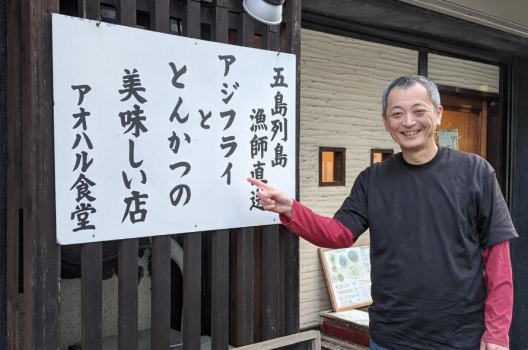 五島列島
漁師直送
アジフライ
と
とんかつの
美味しい店
アオハル食堂